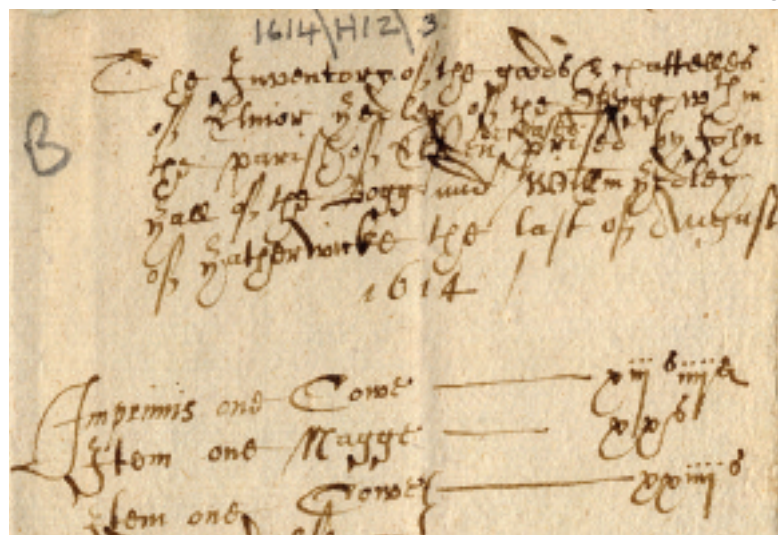 1614/H12/3
B
The Inventory of the goods & cattelles
of Elinor of the Hogg wthin
the parish of decease prised by John
Hall of the Hogg and Willm Hedley
of Hatherwicke the last of August
1614
Imprimis one Cowe xiijs iiijd
Item one Nagge xxs
Item one Cowe xxiiijs